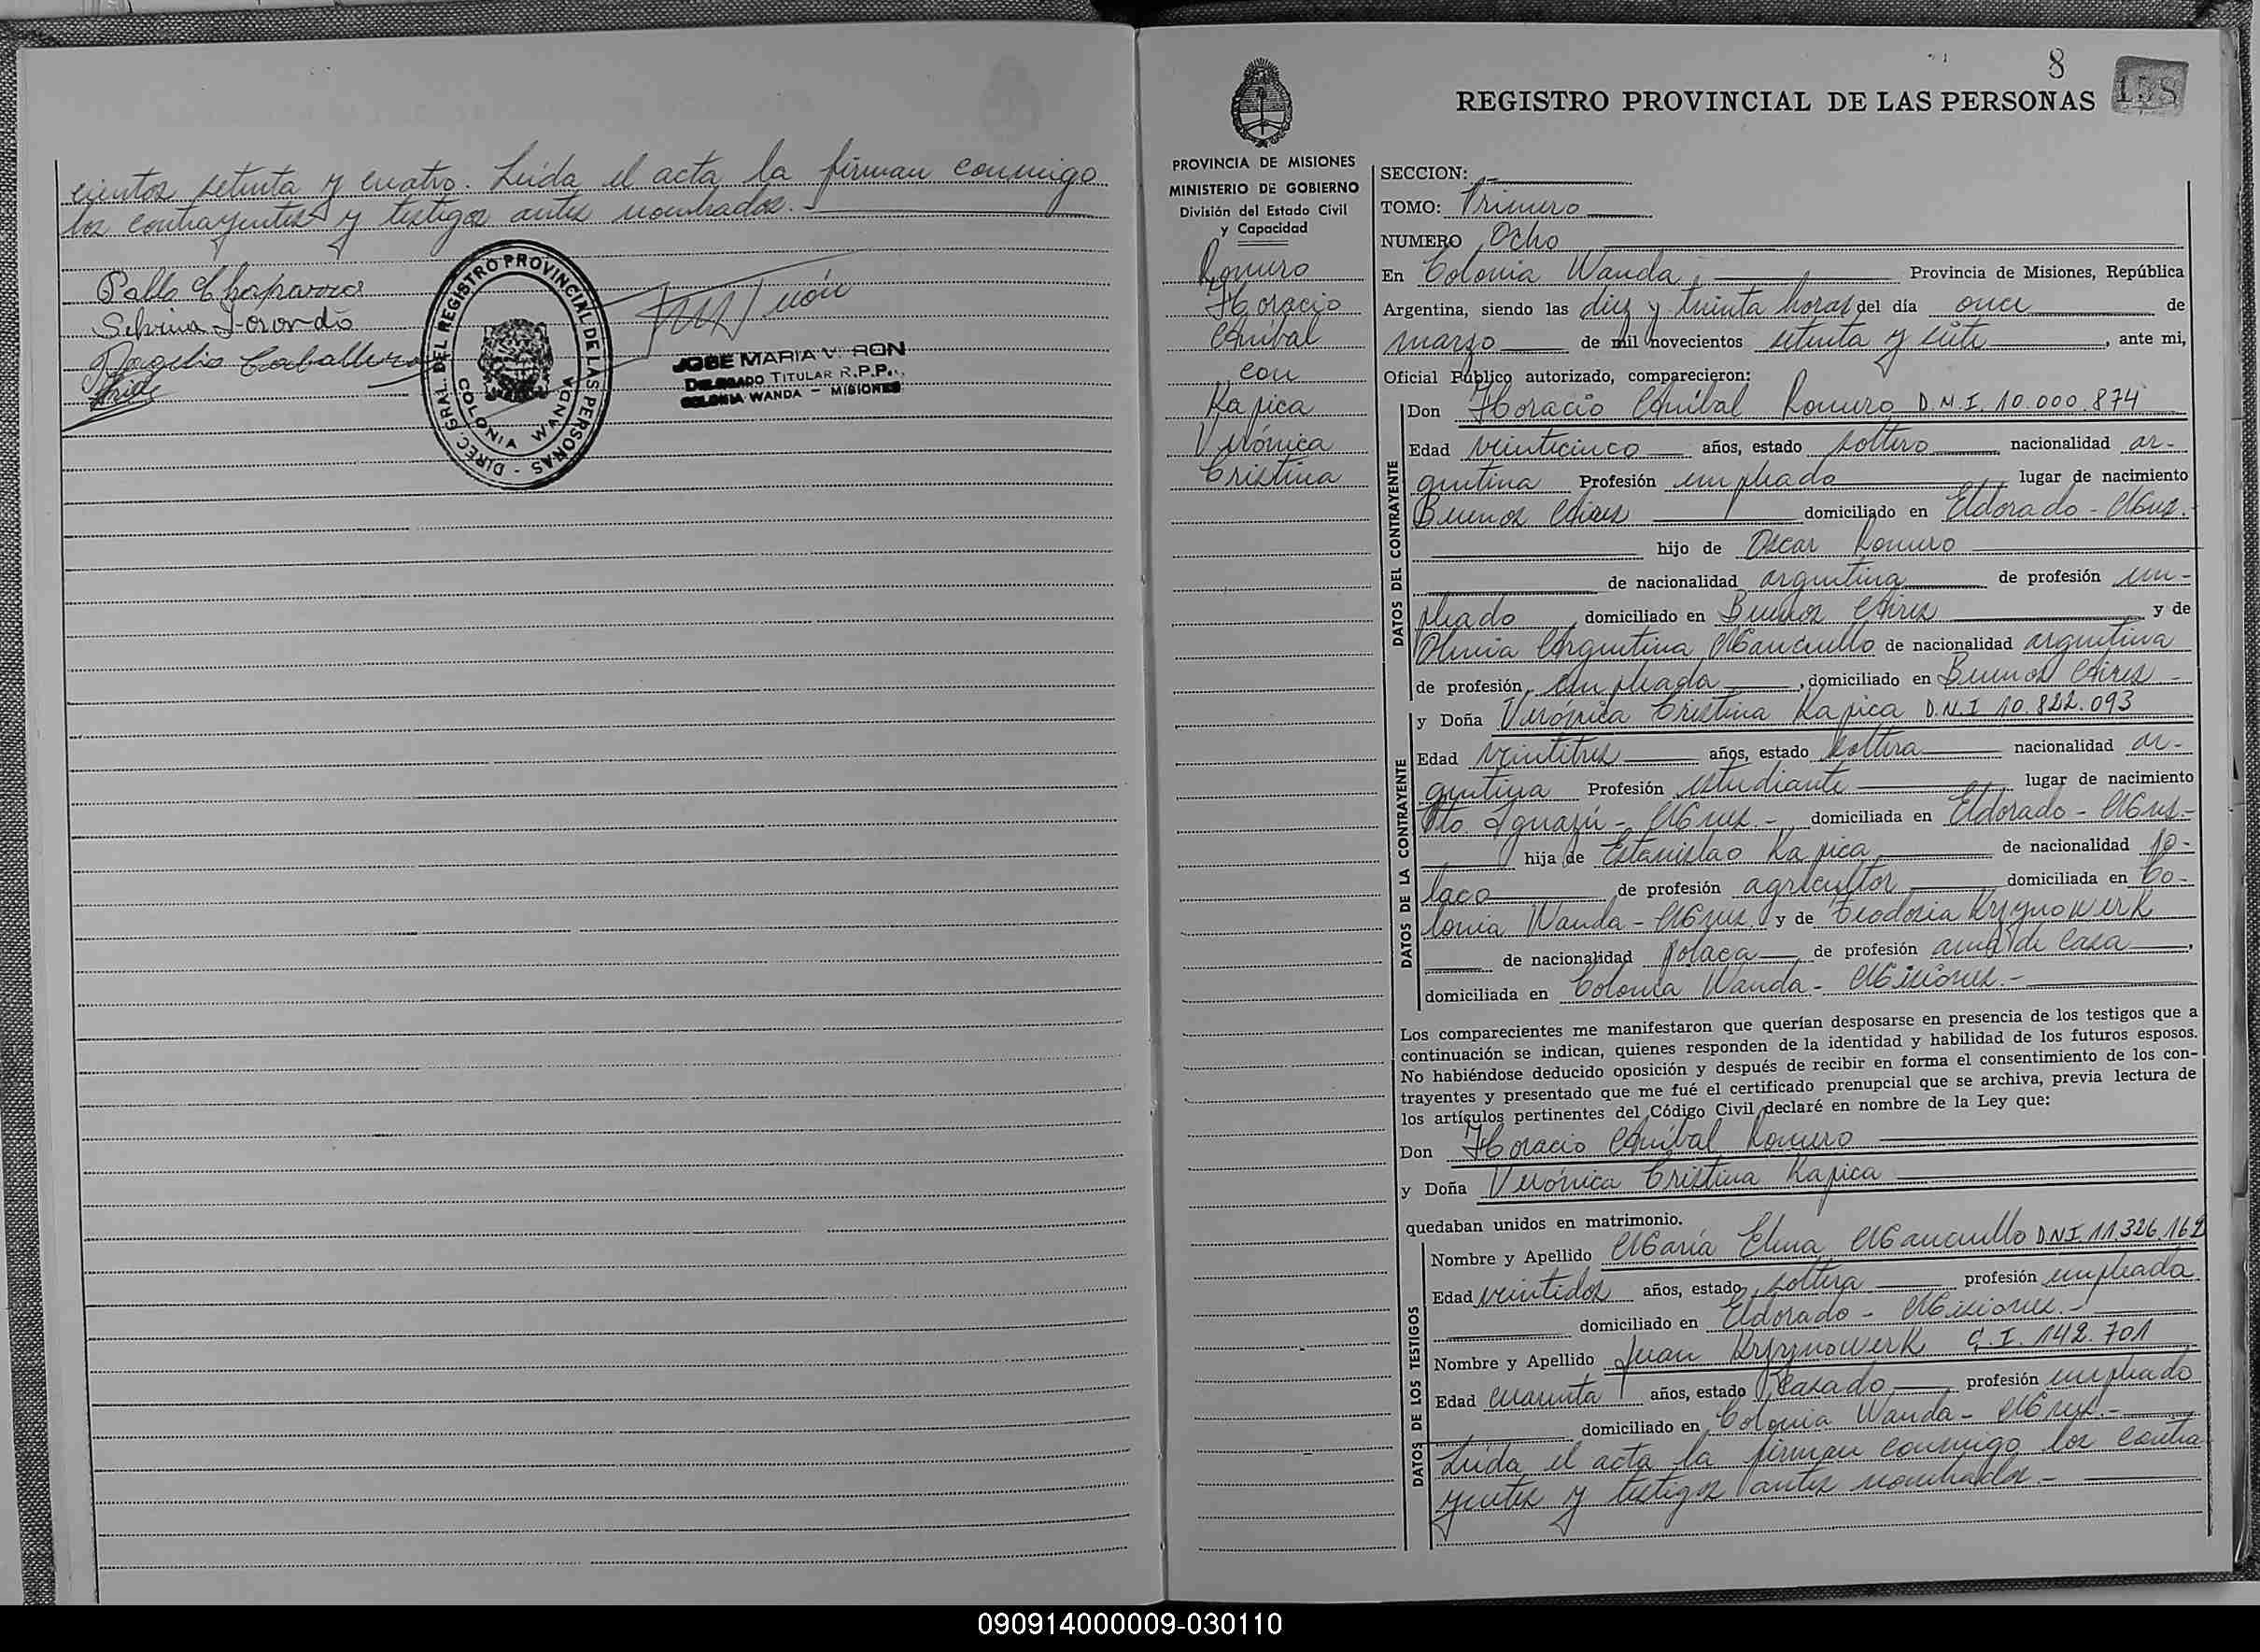 cientos setenta y cuatro. Leída el acta la firman conmigo
los contrayentes y testigos antes nombrados.-
Pablo Chaparro
Silvina
Rogelio Caballero
DIREC. GRAL. DEL REGISTRO PROVINCIAL DE LAS PERSONAS -
COLONIA WANDA
JOSE MARIA V. RON
DELEGADO TITULAR R.P.P.
COLONIA WANDA - MISIONES
8
158
REGISTRO PROVINCIAL DE LAS PERSONAS
PROVINCIA DE MISIONES
MINISTERIO DE GOBIERNO
División del Estado Civil
y Capacidad
Romero
Horacio
Aníbal
con
Kapica
Verónica
Cristina
SECCION:
TOMO: Primero
NUMERO Ocho
En Colonia Wanda, Provincia de Misiones, República
Argentina, siendo las diez y treinta horas del día once de
marzo de mil novecientos setenta y siete, ante mi,
Oficial Público autorizado, comparecieron:
DATOS DEL CONTRAYENTE
Don Horacio Aníbal Romero D.N.I. 10.000.874
Edad veinticinco años, estado soltero nacionalidad ar-
gentina Profesión empleado lugar de nacimiento
Buenos Aires domiciliado en Eldorado - Mnes.
hijo de Oscar Romero
de nacionalidad argentina de profesión em-
pleado, domiciliado en Buenos Aires y de
Argentina Mancuello de nacionalidad argentina
de profesión empleada, domiciliado en Buenos Aires -
DATOS DE LA CONTRAYENTE
y Doña Verónica Cristina Kapica D.N.I 10.822.093
Edad veintitres años, estado soltera nacionalidad ar-
gentina Profesión estudiante lugar de nacimiento
Pto. Iguazú - Mnes.- domiciliada en Eldorado - Mnes.-
hija de Estanislao Kapica de nacionalidad po-
laco de profesión agricultor domiciliada en Co-
lonia Wanda - Mnes. y de Teodosia Kryynowerk
de nacionalidad polaca, de profesión ama de casa,
domiciliada en Colonia Wanda - Misiones.-
Los comparecientes me manifestaron que querían desposarse en presencia de los testigos que a
continuación se indican, quienes responden de la identidad y habilidad de los futuros esposos.
No habiéndose deducido oposición y después de recibir en forma el consentimiento de los con-
trayentes y presentado que me fué el certificado prenupcial que se archiva, previa lectura de
los artículos pertinentes del Código Civil declaré en nombre de la Ley que:
Don Horacio Aníbal Romero
y Doña Verónica Cristina Kapica
quedaban unidos en matrimonio.
DATOS DE LOS TESTIGOS
Nombre y Apellido María Elena Mancuello D.N.I 11.326.162
Edad veintidos años, estado soltera profesión empleada
domiciliado en Eldorado - Misiones.-
Nombre y Apellido Juan Kryynowerk C.I. 142.701
Edad cuarenta años, estado casado, profesión empleado
domiciliado en Colonia Wanda - Mnes.-
Leída el acta la firman conmigo los contra
yentes y testigos antes nombrados.-
090914000009-030110